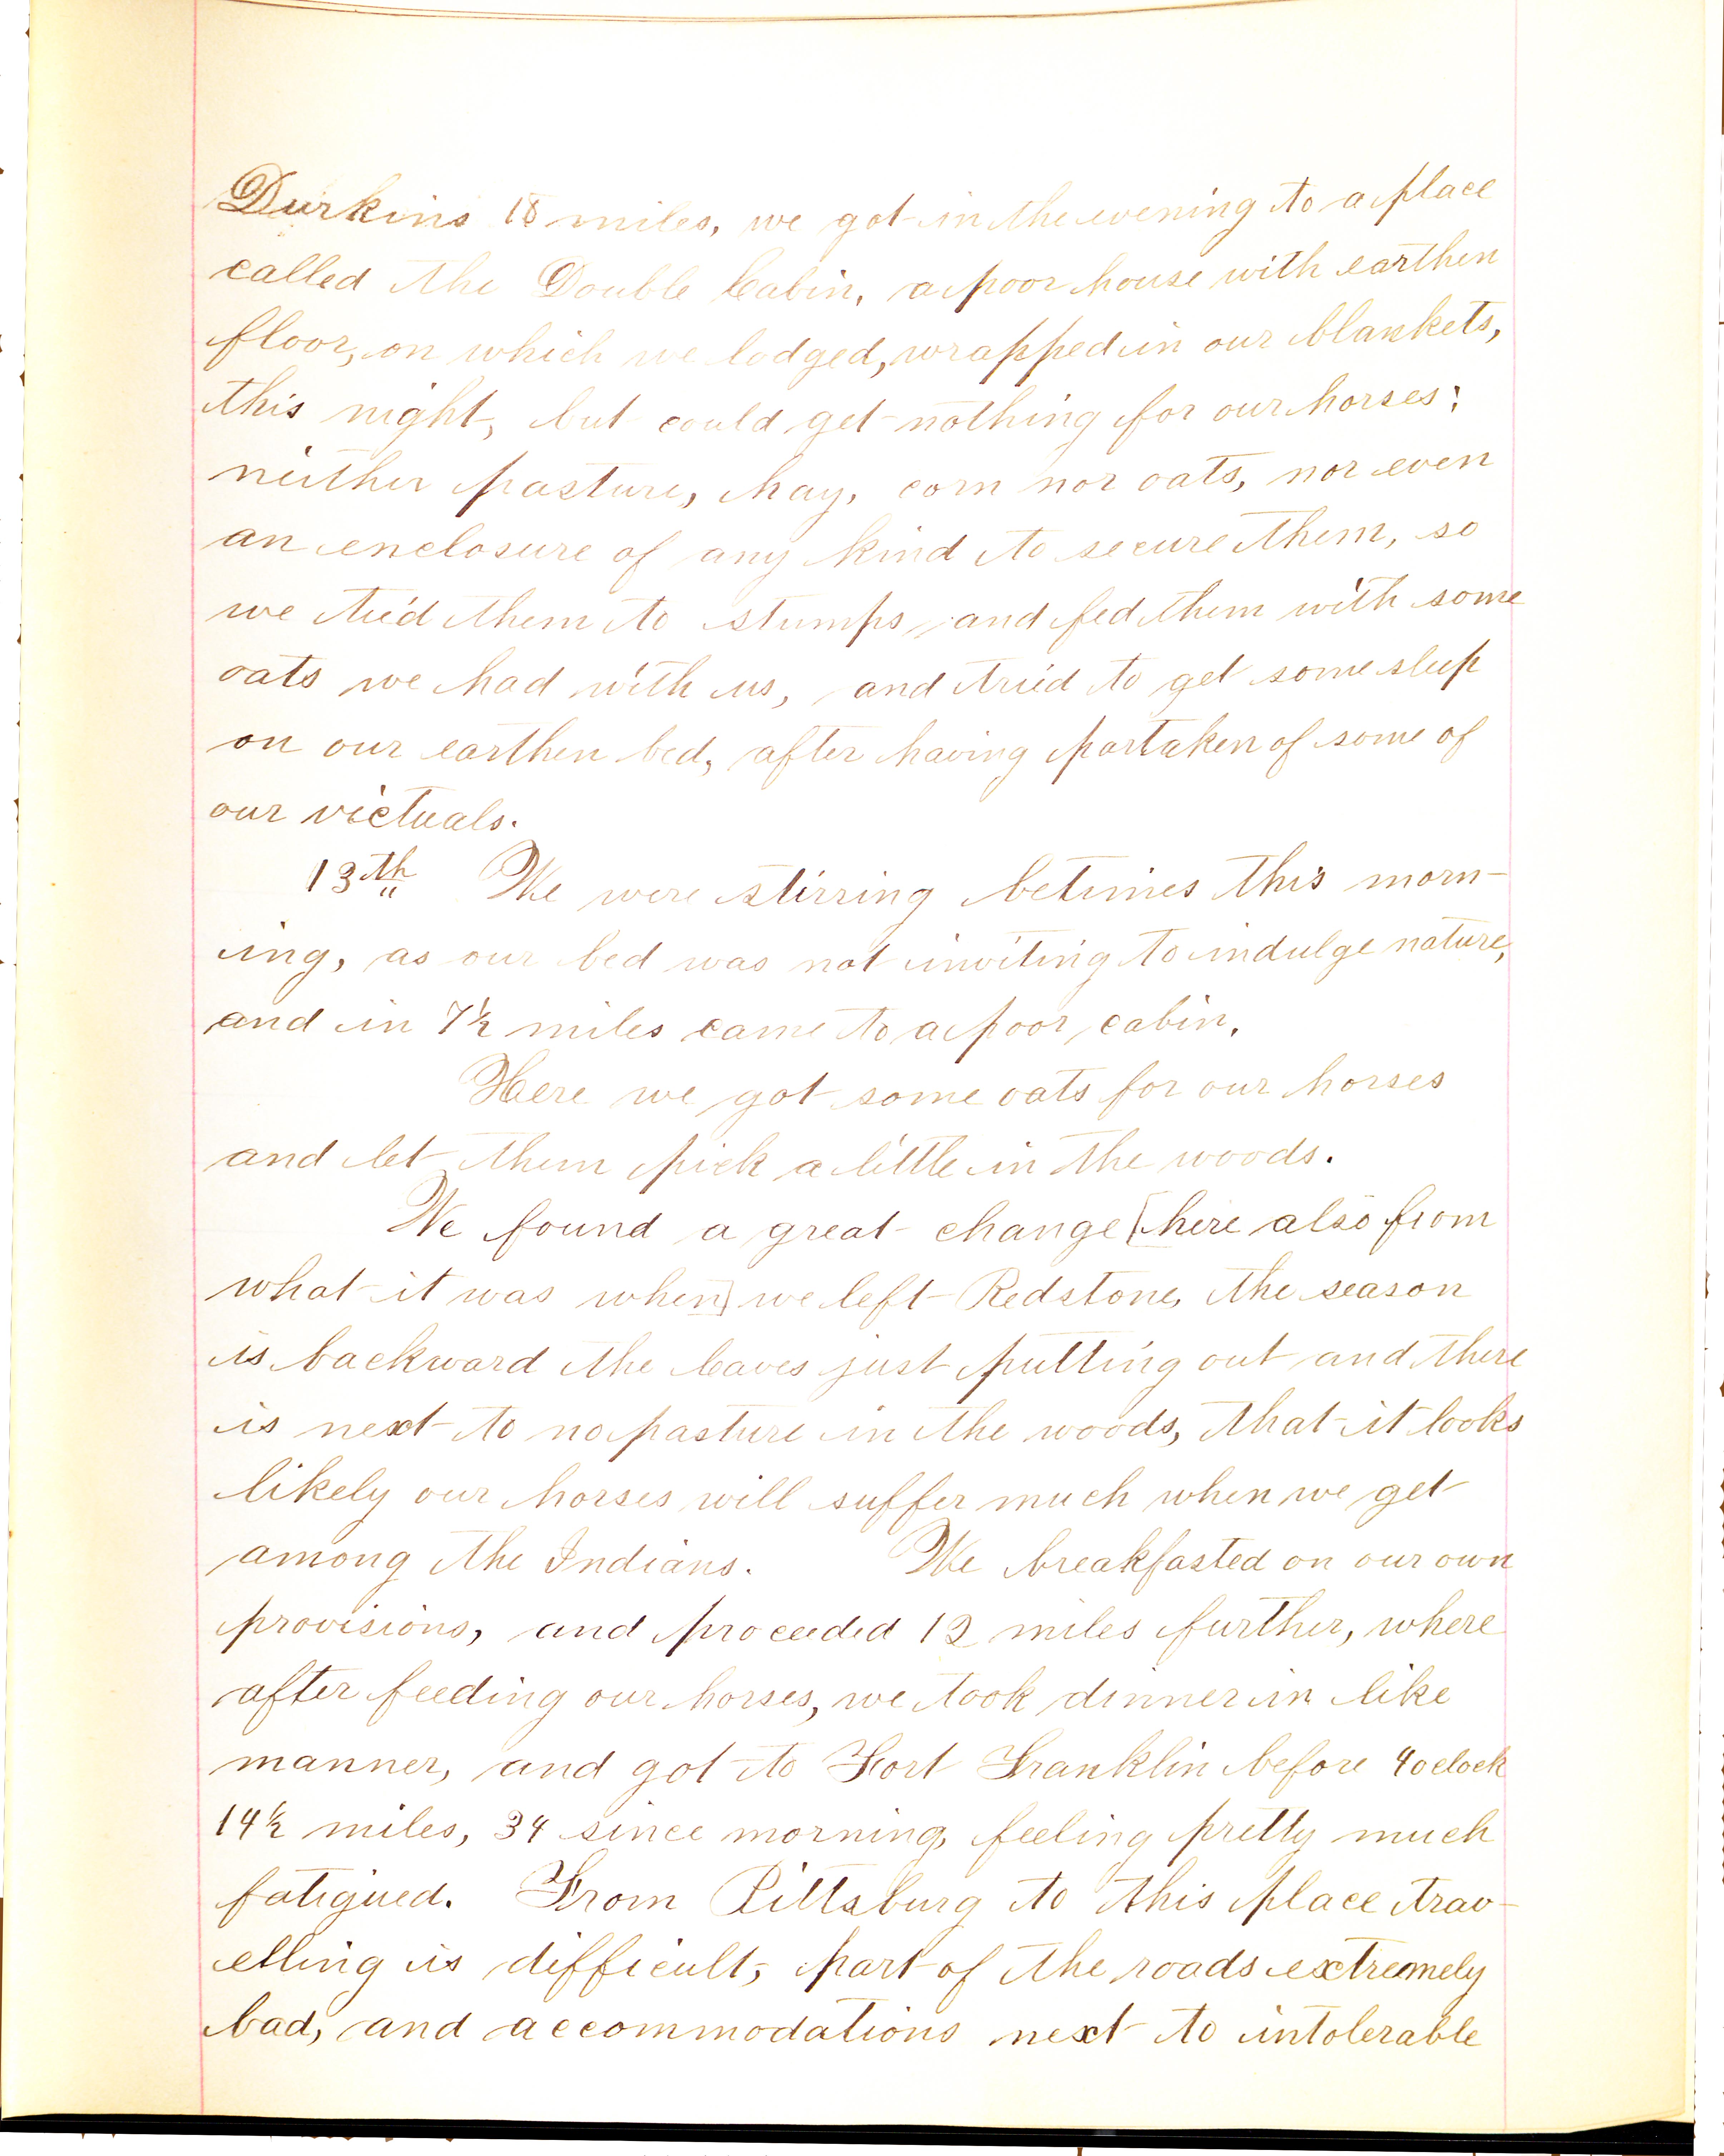 Durkins 18 miles, we got in the evening to a place
called the Double Cabin, a poor house with earthen
floor, on which we lodged, wrapped in our blankets,
this night, but could get nothing for our horses;
neither pasture, hay, corn nor oats, nor even
an enclosure of any kind to secure them, so
we tied them to stumps, and fed them with some
oats we had with us, and tried to get some sleep
on our earthen bed, after having partaken of some of
our victuals.
13th We were stirring betimes this morn-
ing, as our bed was not inviting to indulge nature,
and in 7½ miles came to a poor cabin.
Here we got some oats for our horses
and let them pick a little in the woods.
We found a great change [here also from
what it was when] we left Redstone, the season
is backward the leaves just putting out and there
is next to no pasture in the woods, that it looks
likely our horses will suffer much when we get
among the Indians. We breakfasted on our own
provisions, and proceeded 12 miles further, where
after feeding our horses, we took dinner in like
manner, and got to Fort Franklin before 4 oclock
14½ miles, 34 since morning, feeling pretty much
fatigued. From Pittsburg to this place trav-
elling is difficult, part of the roads extremely
bad, and accommodations next to intolerable